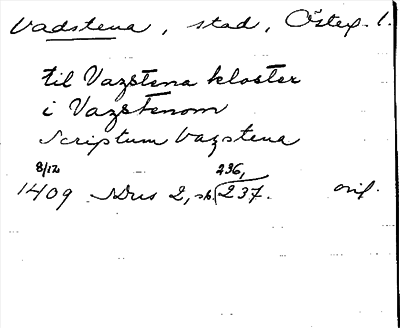 Vadstena, stad, Österg. l.
til Vazstena kloster
i Vazstenom
Scriptum Vazstena
8/12 236,
1409 SDns 2, sh. 237. orig.